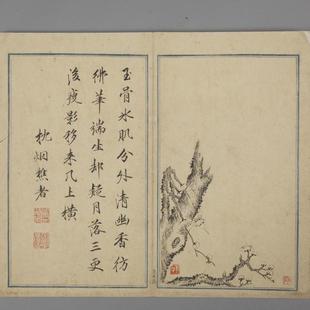 玉骨冰肌分外清幽香彷
彿華端坐却疑月落三更
後瘦影移来几上橫
枕烟樵者